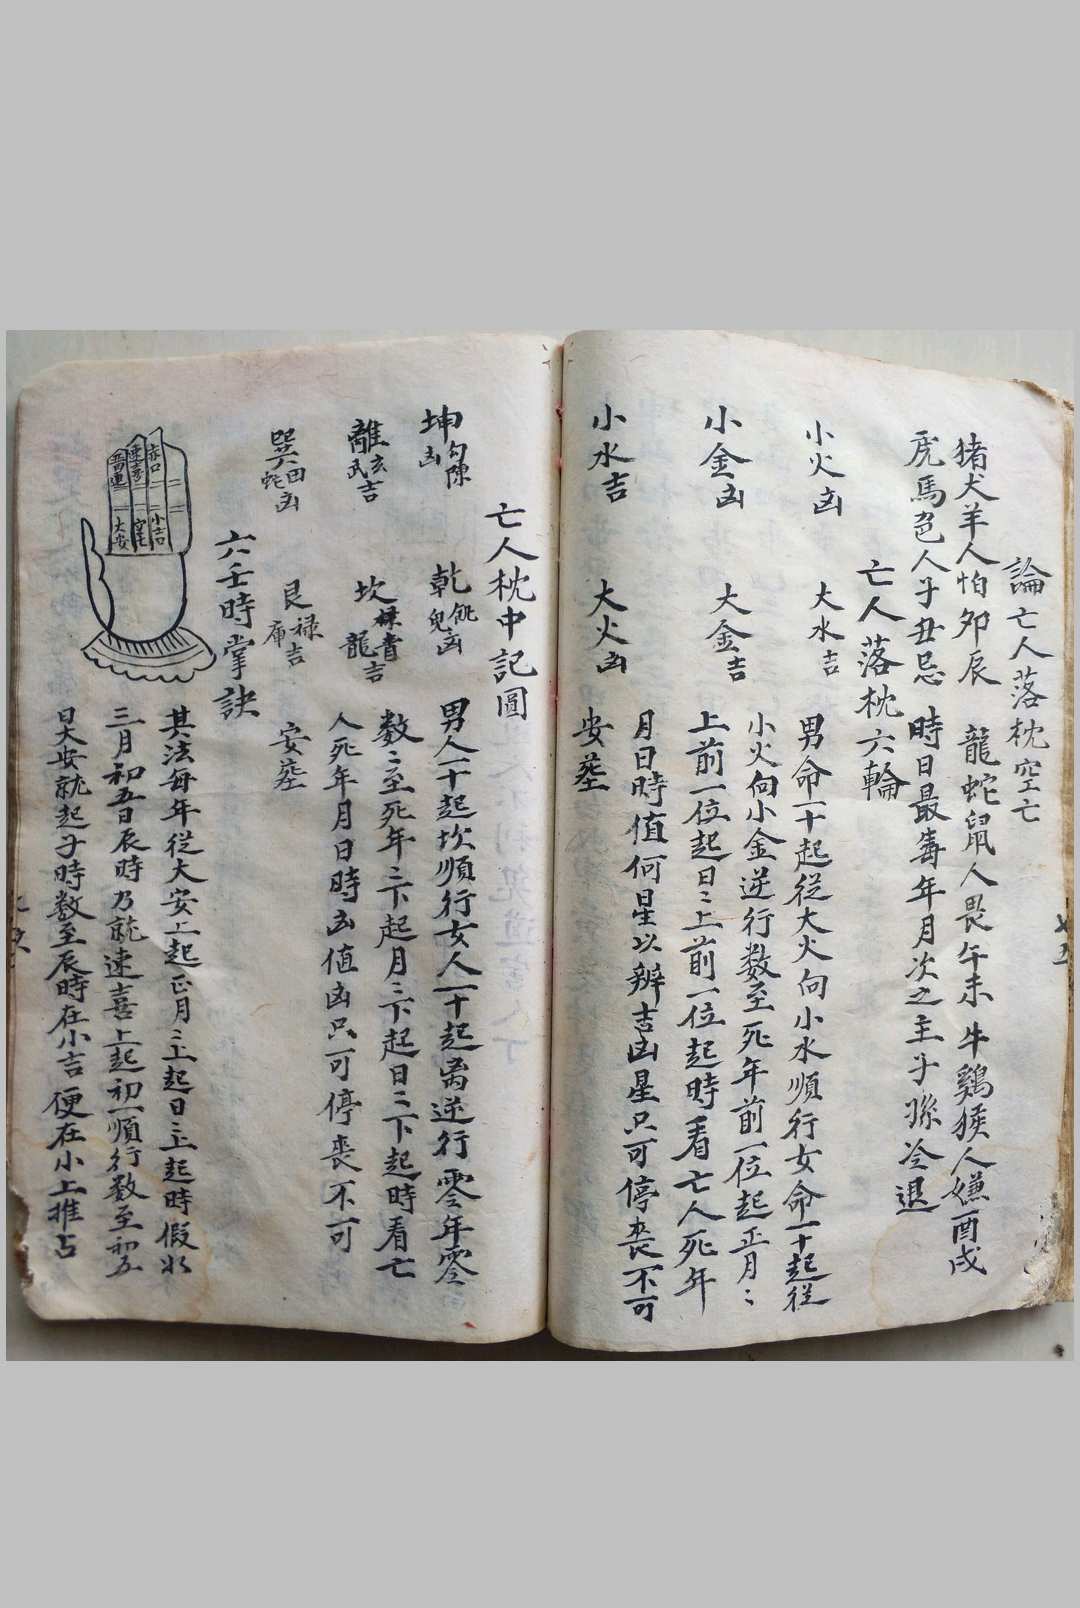 論亡人落枕空亡
猪犬羊人怕夘辰 龍蛇鼠人畏午未牛鷄猴人嫌酉戌
虎馬㐌人子丑忌 時日最毒年月次之主子孫冷退
亡人落枕六輪
小火凶 大水吉 男命一十起從大火向小水順行女命一十起從
小火向小金逆行数至死年前一位起正月〻
小金凶 大金吉 上前一位起日〻上前一位起時看亡人死年
月日時值何星以辨吉凶星只可停喪不可
小水吉 大火凶 安塟
亡人枕中記圖
坤勾陳凶 乾 凶 男人一十起坎順行女人一十起离逆行零年零
離玄武吉 坎青龍吉 数〻至死年〻下起月〻下起日〻下起時看亡
人死年月日時凶值凶只可停喪不可
巽田蛇凶 艮禄庫吉 安塟
六壬時掌訣
赤口
速喜
畱連
小吉
空亡
大安
其法每年從大安上起正月〻上起日〻上起時假如
三月初五日辰時乃就速喜上起初一順行数至初五
日大安就起子時数至辰時在小吉便在小上推占